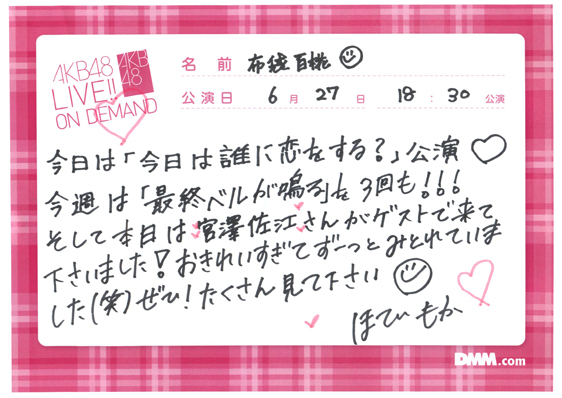 AKB48
LIVE!!
ON DEMAND
AKB
48
名 前 布袋百桃
公演日 6月 27日 18:30 公演
今日は「今日は誰に恋をする?」公演
今週は「最終ベルが鳴る」も3回も!!!
そして本日は宮澤佐江さんがゲストで来て
下さいました!おきれいすぎてずーっとみとれていま
した(笑)ぜひ!たくさん見て下さい
ほてい もか
DMM.com